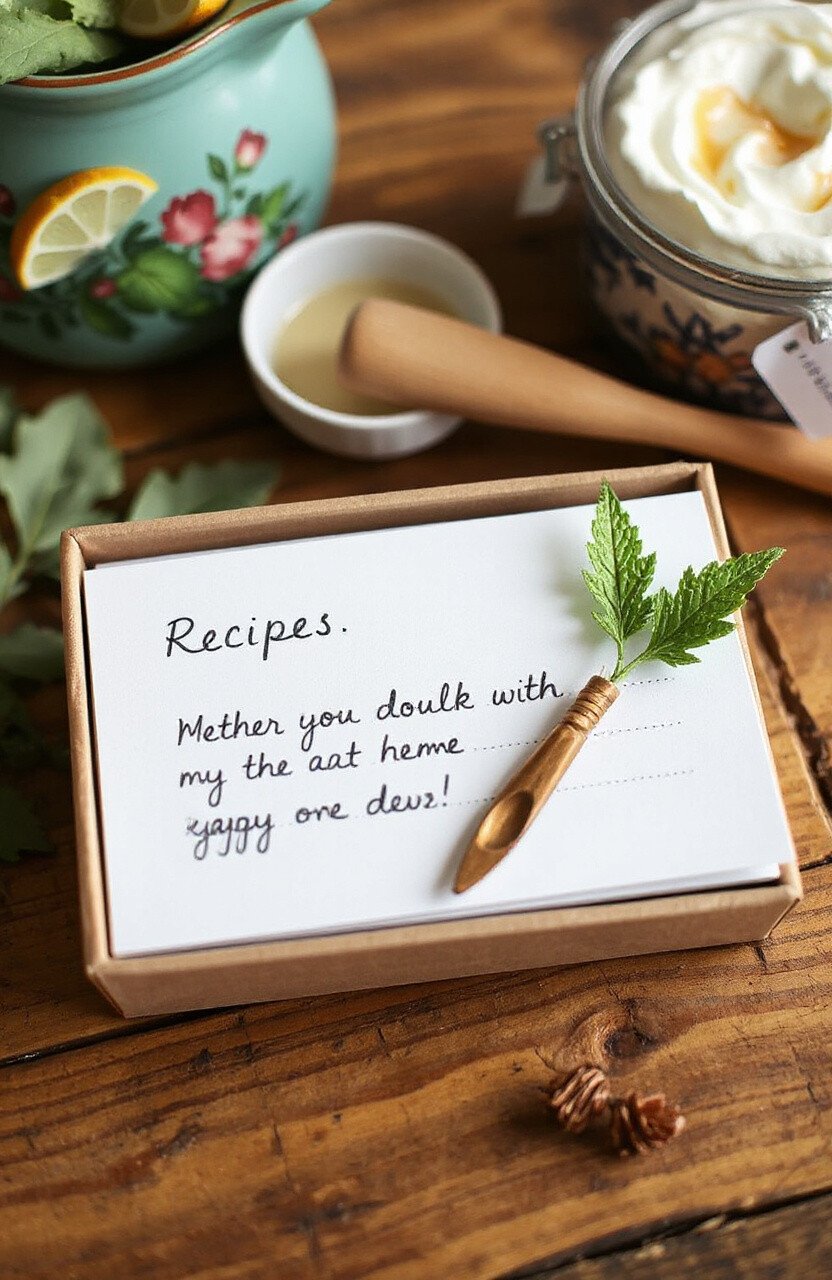 Recipes.
Mether you doulk with
my the aat heme
one deuz!